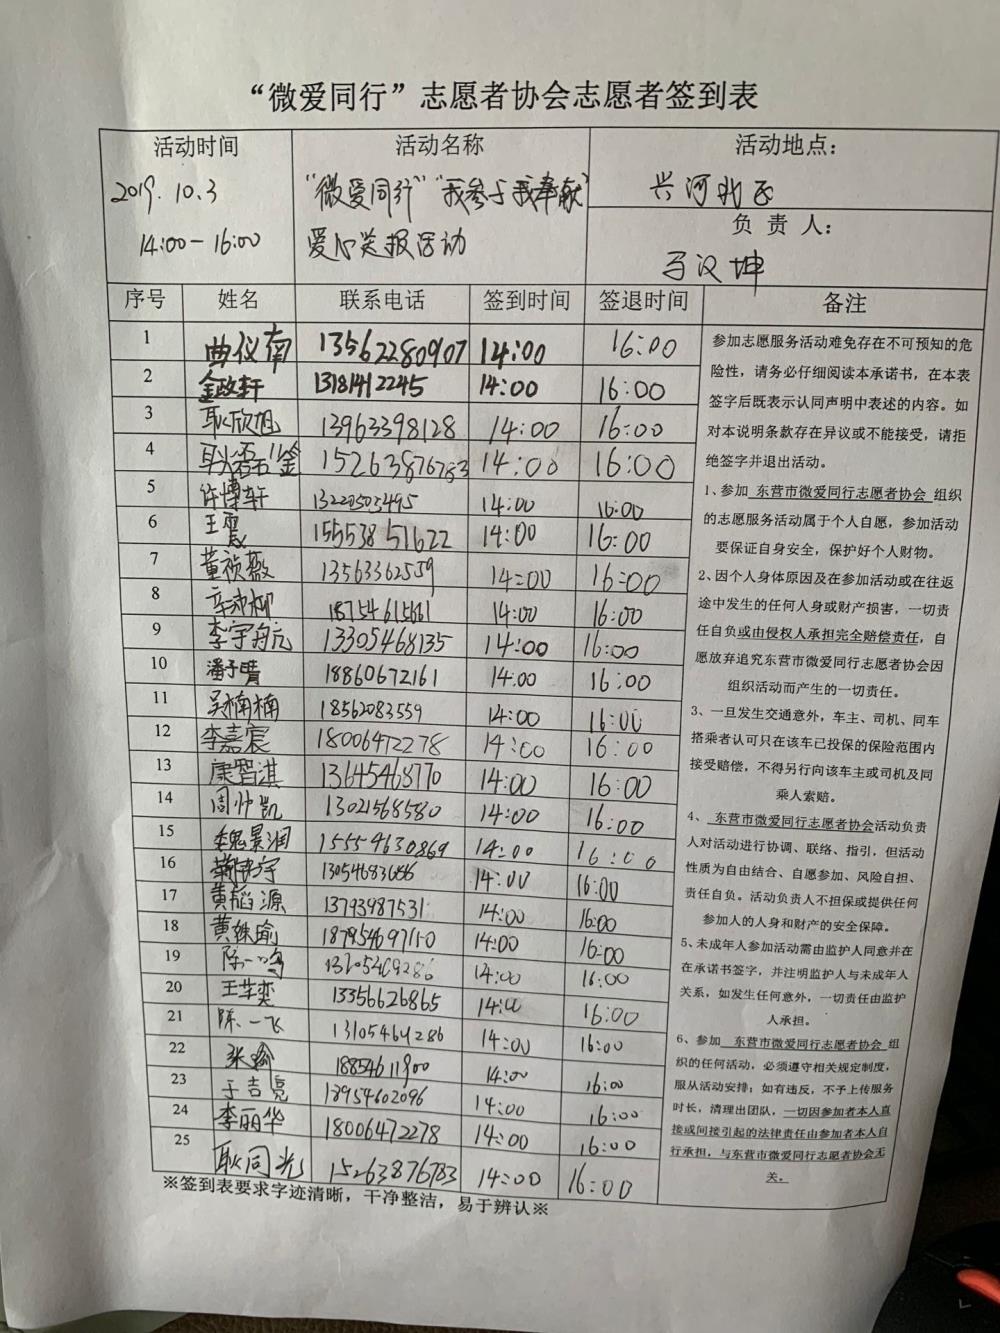 “微爱同行”志愿者协会志愿者签到表
活动时间
2019.10.3
14:00-16:00
活动名称
“微爱同行”“我参与我奉献”
爱心义报活动
活动地点：
兴河北区
负 责 人：
马汉坤
序号 姓名 联系电话 签到时间 签退时间 备注
1 曲仪南 13562280907 14:00 16:00
2 金政轩 13181412245 14:00 16:00
3 耿欣旭 13963398128 14:00 16:00
4 15263876783 14:00 16:00
5 许博轩 13220503495 14:00 16:00
6 王震 15553851622 14:00 16:00
7 董祯薇 13563362559 14:00 16:00
8 18754615661 14:00 16:00
9 李宇航 13305468135 14:00 16:00
10 潘予晴 18860672161 14:00 16:00
11 吴楠楠 18562083559 14:00 16:00
12 李嘉宸 18006472278 14:00 16:00
13 康智淇 13645468770 14:00 16:00
14 周帅凯 13021568580 14:00 16:00
15 魏景润 15554630869 14:00 16:00
16 14:00 16:00
17 黄韬源 13793987531 14:00 16:00
18 黄轶瑜 14:00 16:00
19 陈一鸣 14:00 16:00
20 王芊奕 13356626865 14:00 16:00
21 陈一飞 13105464286 14:00 16:00
22 张瑜 18854611900 14:00 16:00
23 于吉亮 18954602096 14:00 16:00
24 李丽华 18006472278 14:00 16:00
25 耿同光 15263876783 14:00 16:00
参加志愿服务活动难免存在不可预知的危
险性，请务必仔细阅读本承诺书，在本表
签字后既表示认同声明中表述的内容。如
对本说明条款存在异议或不能接受，请拒
绝签字并退出活动。
1、参加 东营市微爱同行志愿者协会 组织
的志愿服务活动属于个人自愿，参加活动
要保证自身安全，保护好个人财物。
2、因个人身体原因及在参加活动或在往返
途中发生的任何人身或财产损害，一切责
任自负或由侵权人承担完全赔偿责任，自
愿放弃追究东营市微爱同行志愿者协会因
组织活动而产生的一切责任。
3、一旦发生交通意外，车主、司机、同车
搭乘者认可只在该车已投保的保险范围内
接受赔偿，不得另行向该车主或司机及同
乘人索赔。
4、 东营市微爱同行志愿者协会活动负责
人对活动进行协调、联络、指引，但活动
性质为自由结合、自愿参加、风险自担、
责任自负。活动负责人不担保或提供任何
参加人的人身和财产的安全保障。
5、未成年人参加活动需由监护人同意并在
在承诺书签字，并注明监护人与未成年人
关系，如发生任何意外，一切责任由监护
人承担。
6、参加 东营市微爱同行志愿者协会 组
织的任何活动，必须遵守相关规定制度，
服从活动安排；如有违反，不予上传服务
时长，清理出团队，一切因参加者本人直
接或间接引起的法律责任由参加者本人自
行承担，与东营市微爱同行志愿者协会无
关。
※签到表要求字迹清晰，干净整洁，易于辨认※